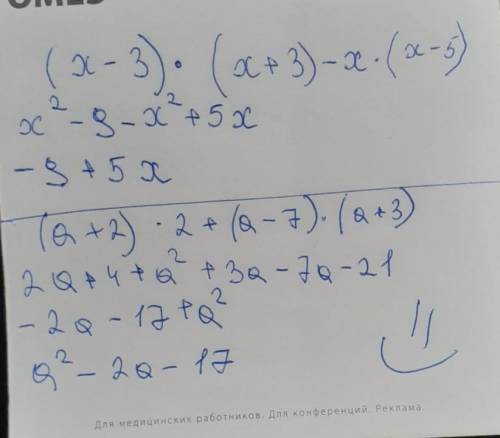 (x - 3) · (x + 3) - x · (x - 5)
x² - 9 - x² + 5x
- 9 + 5x
(a + 2) · 2 + (a - 7) · (a + 3)
2a + 4 + a² + 3a - 7a - 21
- 2a - 17 + a²
a² - 2a - 17
Для медицинских работников. Для конференций. Реклама.